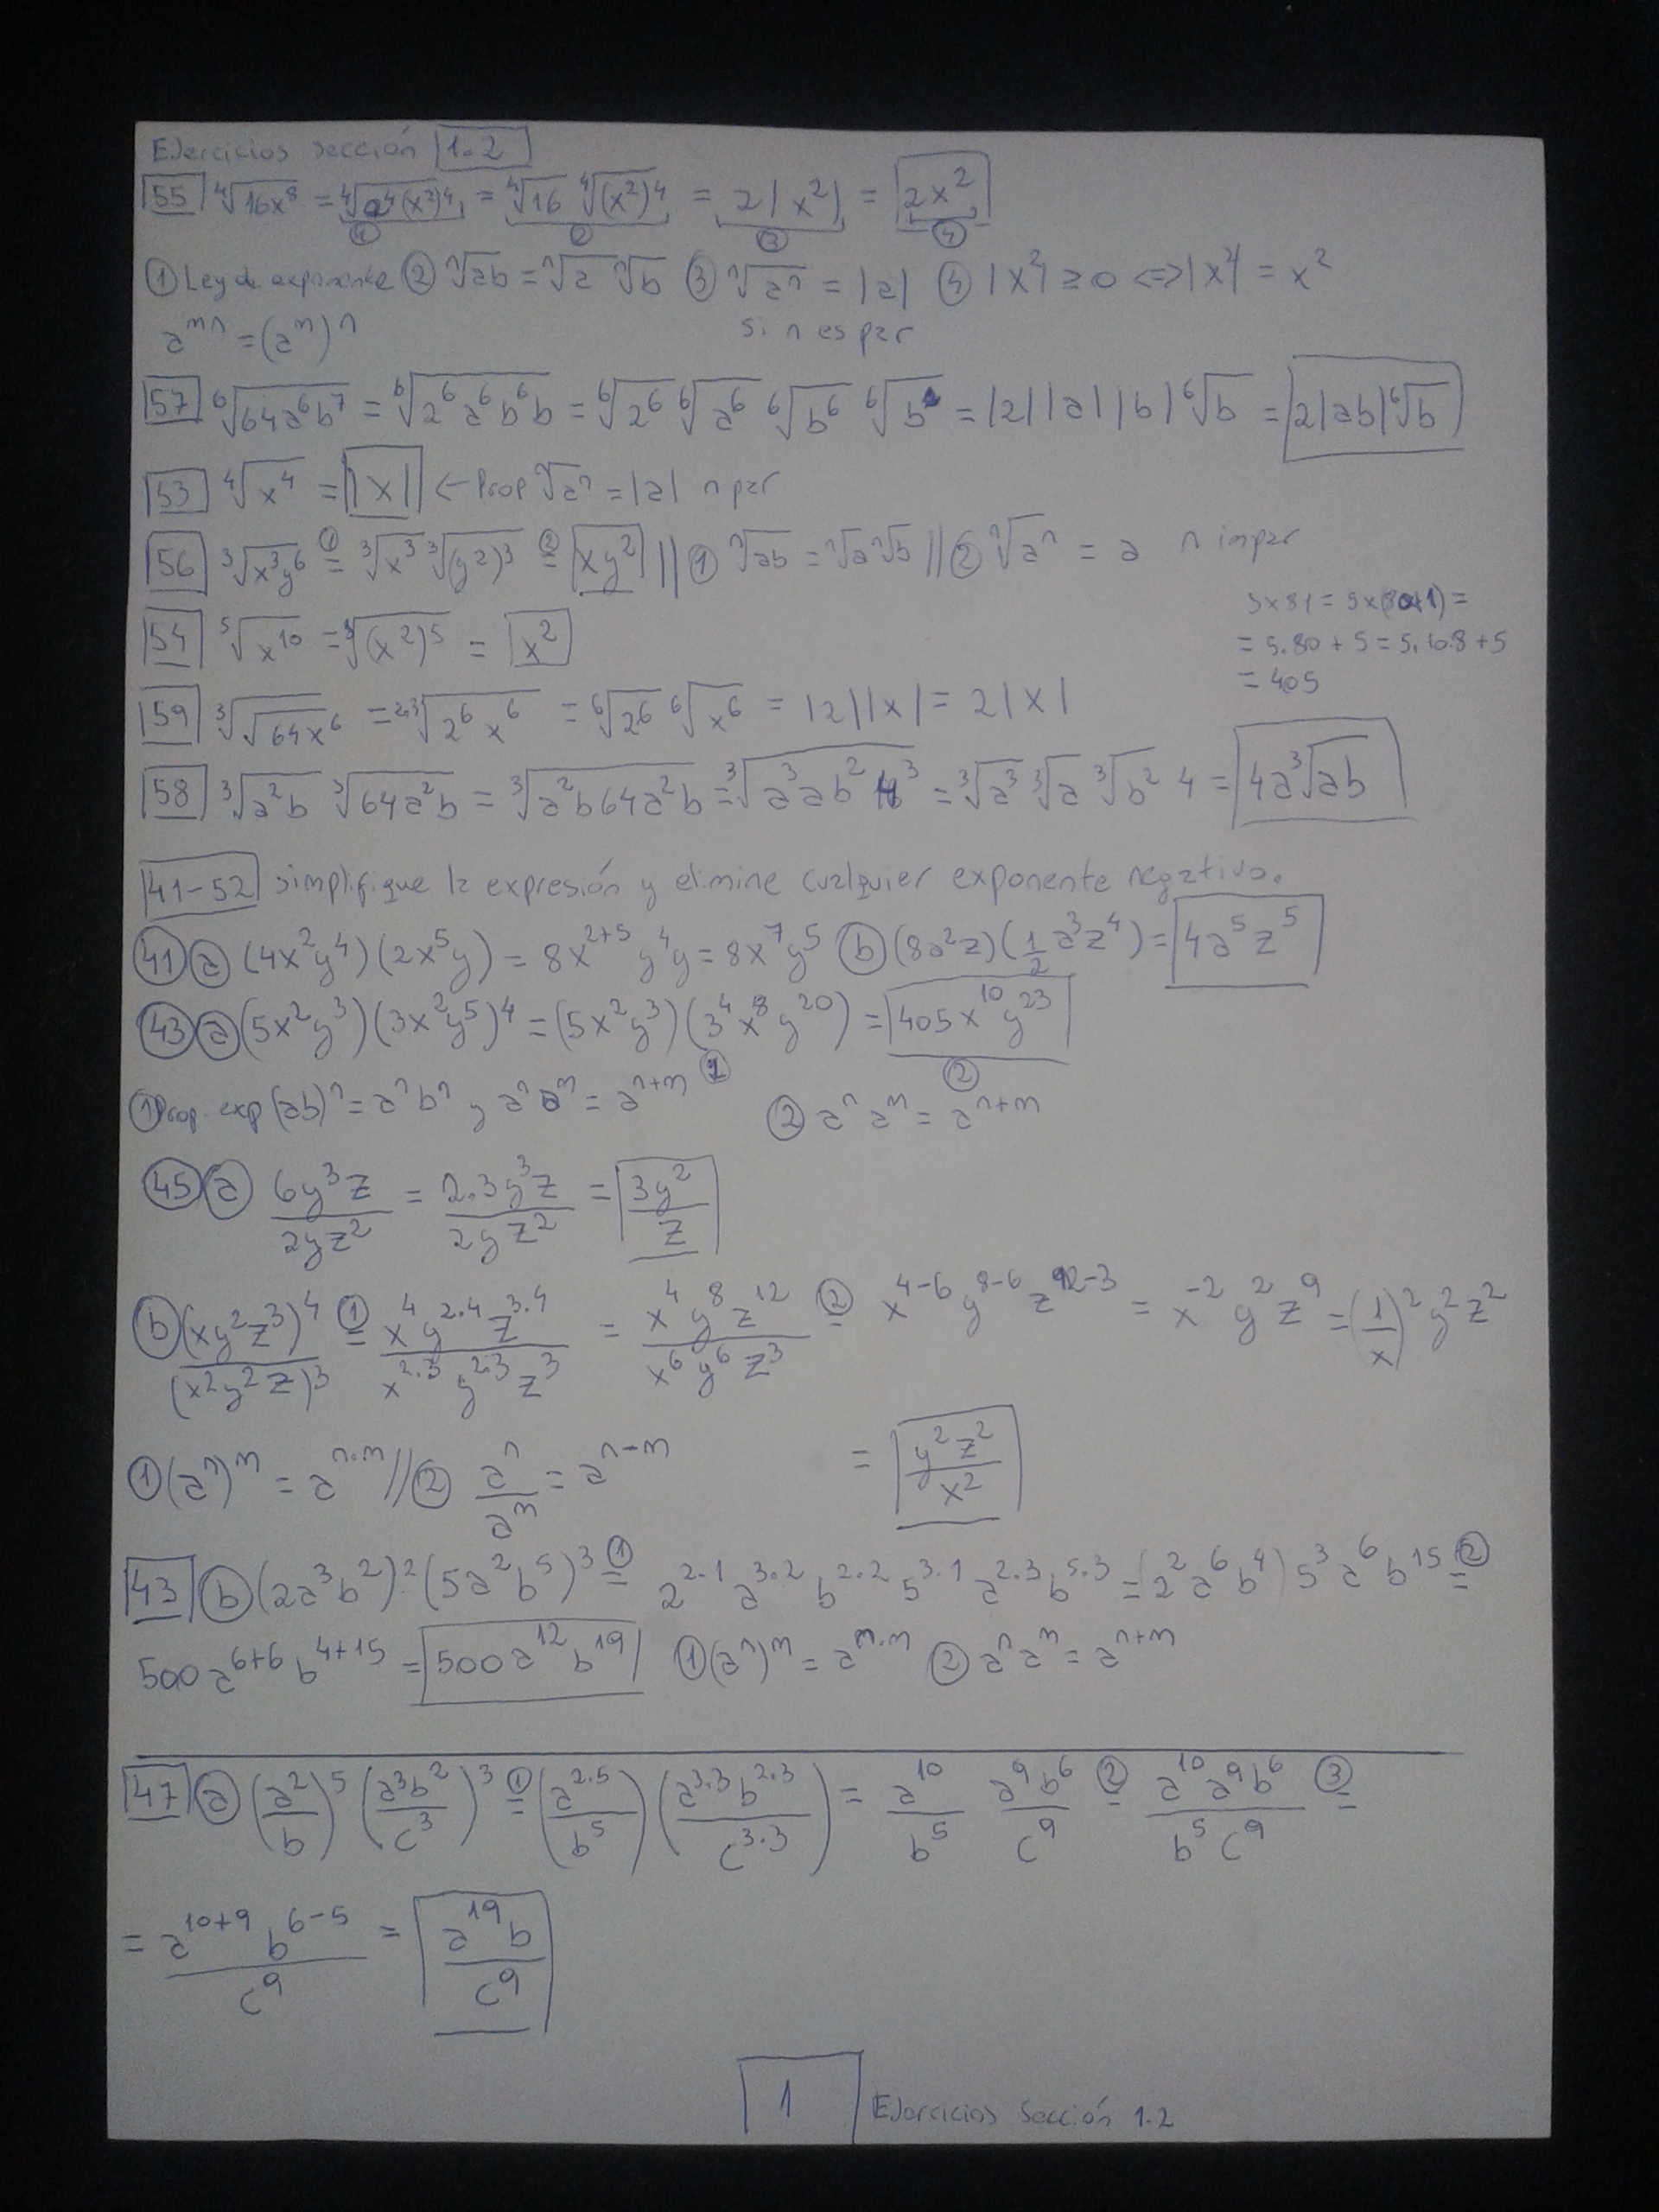 Ejercicios sección 1.2
55 ⁴√(16x⁸) = ⁴√(2⁴(x²)⁴) = ⁴√16 ⁴√((x²)⁴) = 2|x²| = 2x²
① ② ③ ④
① Ley de exponente ② ⁿ√(ab) = ⁿ√a ⁿ√b ③ ⁿ√(aⁿ) = |a| ④ |x²| ≥ 0 <=> |x²| = x²
aᵐⁿ = (aᵐ)ⁿ si n es par
57 ⁶√(64a⁶b⁷) = ⁶√(2⁶a⁶b⁶b) = ⁶√(2⁶) ⁶√(a⁶) ⁶√(b⁶) ⁶√b = |2||a||b| ⁶√b = 2|ab|⁶√b
53 ⁴√(x⁴) = |x| ← Prop ⁿ√(aⁿ) = |a| n par
56 ³√(x³y⁶) =① ³√(x³) ³√((y²)³) =② xy² // ① ⁿ√(ab) = ⁿ√a ⁿ√b // ② ⁿ√(aⁿ) = a n impar
5x81 = 5x(80+1) =
54 ⁵√(x¹⁰) = ⁵√((x²)⁵) = x²
= 5.80 + 5 = 5.10.8 + 5
= 405
59 ³√(√(64x⁶)) = ²·³√(2⁶x⁶) = ⁶√(2⁶) ⁶√(x⁶) = |2||x| = 2|x|
58 ³√(a²b) ³√(64a²b) = ³√(a²b64a²b) = ³√(a³ab²4³) = ³√(a³) ³√a ³√(b²) 4 = 4a³√(ab)
41-52 simplifique la expresión y elimine cualquier exponente negativo.
41 a (4x²y⁴)(2x⁵y) = 8x²⁺⁵y⁴y = 8x⁷y⁵ b (8a²z)(1/2 a³z⁴) = 4a⁵z⁵
43 a (5x²y³)(3x²y⁵)⁴ = (5x²y³)(3⁴x⁸y²⁰) = 405x¹⁰y²³
① ②
① Prop. exp (ab)ⁿ = aⁿbⁿ y aⁿaᵐ = aⁿ⁺ᵐ ② aⁿaᵐ = aⁿ⁺ᵐ
45 a 6y³z/2yz² = 2.3y³z/2yz² = 3y²/z
b (xy²z³)⁴/(x²y²z)³ =① x⁴y²·⁴z³·⁴/x²·³y²·³z³ = x⁴y⁸z¹²/x⁶y⁶z³ =② x⁴⁻⁶y⁸⁻⁶z¹²⁻³ = x⁻²y²z⁹ = (1/x)²y²z²
= y²z²/x²
① (aⁿ)ᵐ = aⁿ·ᵐ // ② aⁿ/aᵐ = aⁿ⁻ᵐ
43 b (2a³b²)².(5a²b⁵)³ =① 2²·¹a³·²b²·²5³·¹a²·³b⁵·³ = (2²a⁶b⁴)5³a⁶b¹⁵ =②
500a⁶⁺⁶b⁴⁺¹⁵ = 500a¹²b¹⁹ ① (aⁿ)ᵐ = aⁿ·ᵐ ② aⁿaᵐ = aⁿ⁺ᵐ
47 a (a²/b)⁵(a³b²/c³)³ =① (a²·⁵/b⁵)(a³·³b²·³/c³·³) = a¹⁰/b⁵ a⁹b⁶/c⁹ =② a¹⁰a⁹b⁶/b⁵c⁹ =③
= a¹⁰⁺⁹b⁶⁻⁵/c⁹ = a¹⁹b/c⁹
1 Ejercicios Sección 1.2